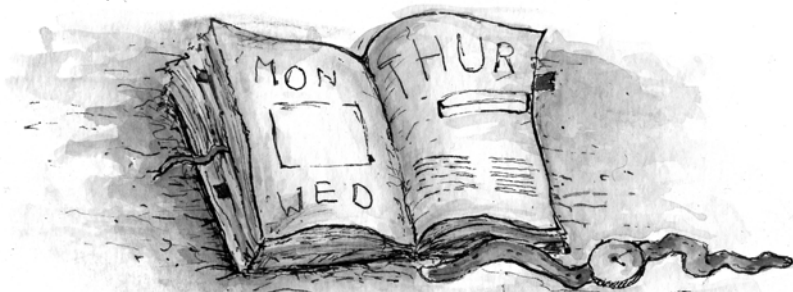 MON
WED
THUR